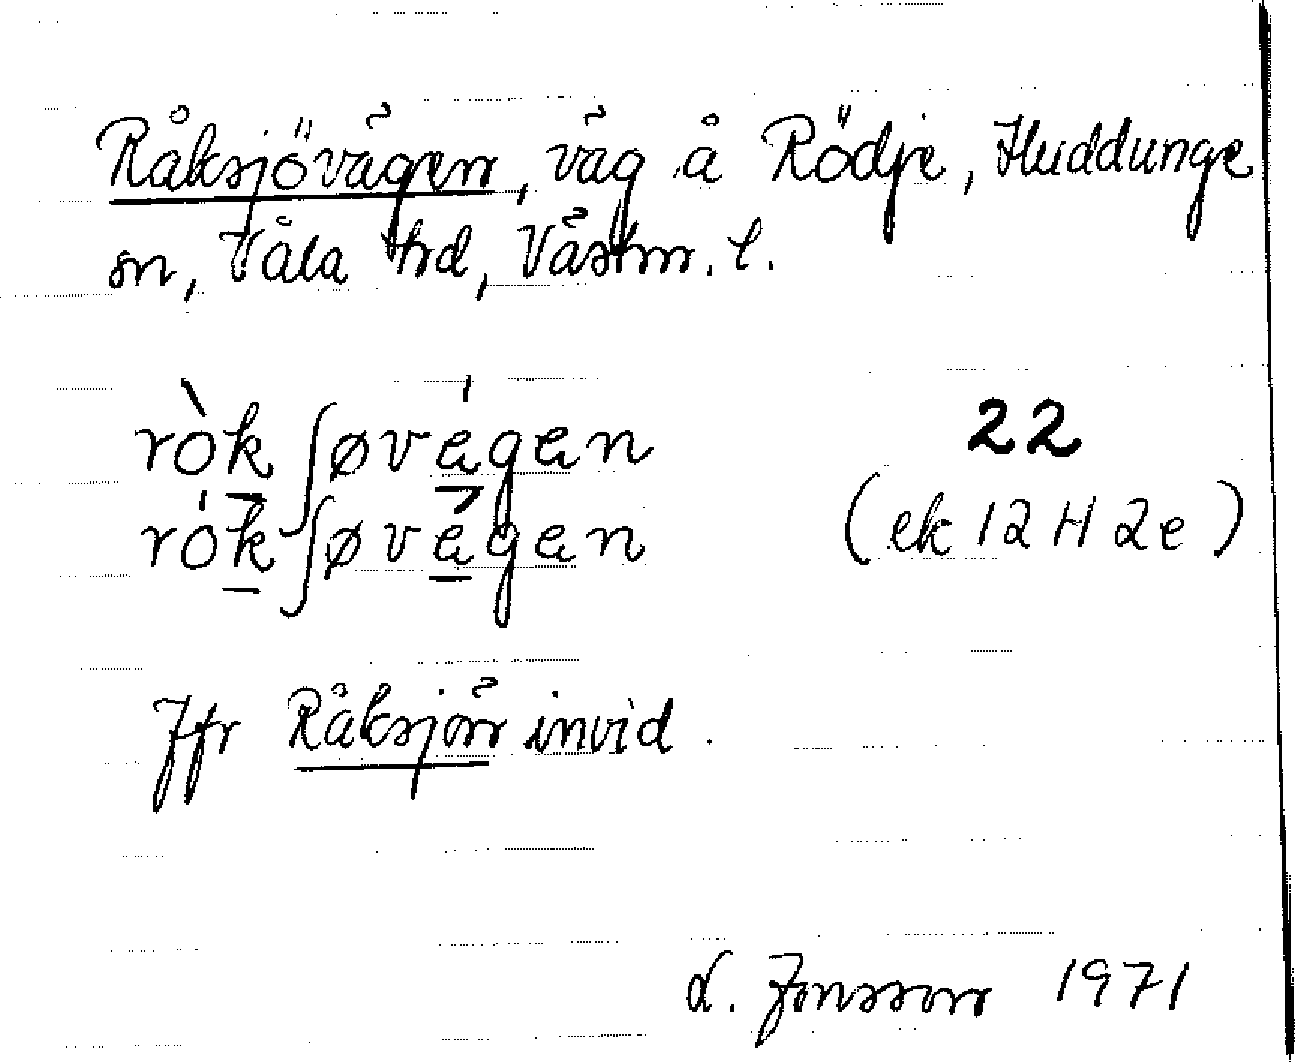 Råksjövägen, väg å Rödje, Huddunge
sn, Våla hd, Västm. l.
rò̀k ʃøvágen 22
rók ʃøvàgen (ek 12 H 2e)
Jfr Råksjön invid.
L. Jonsson 1971